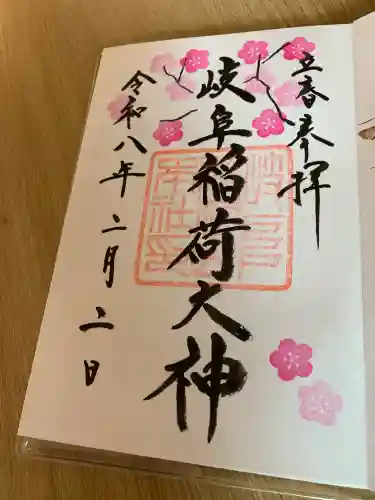 立春奉拝
岐阜稲荷大神
令和八年二月二日